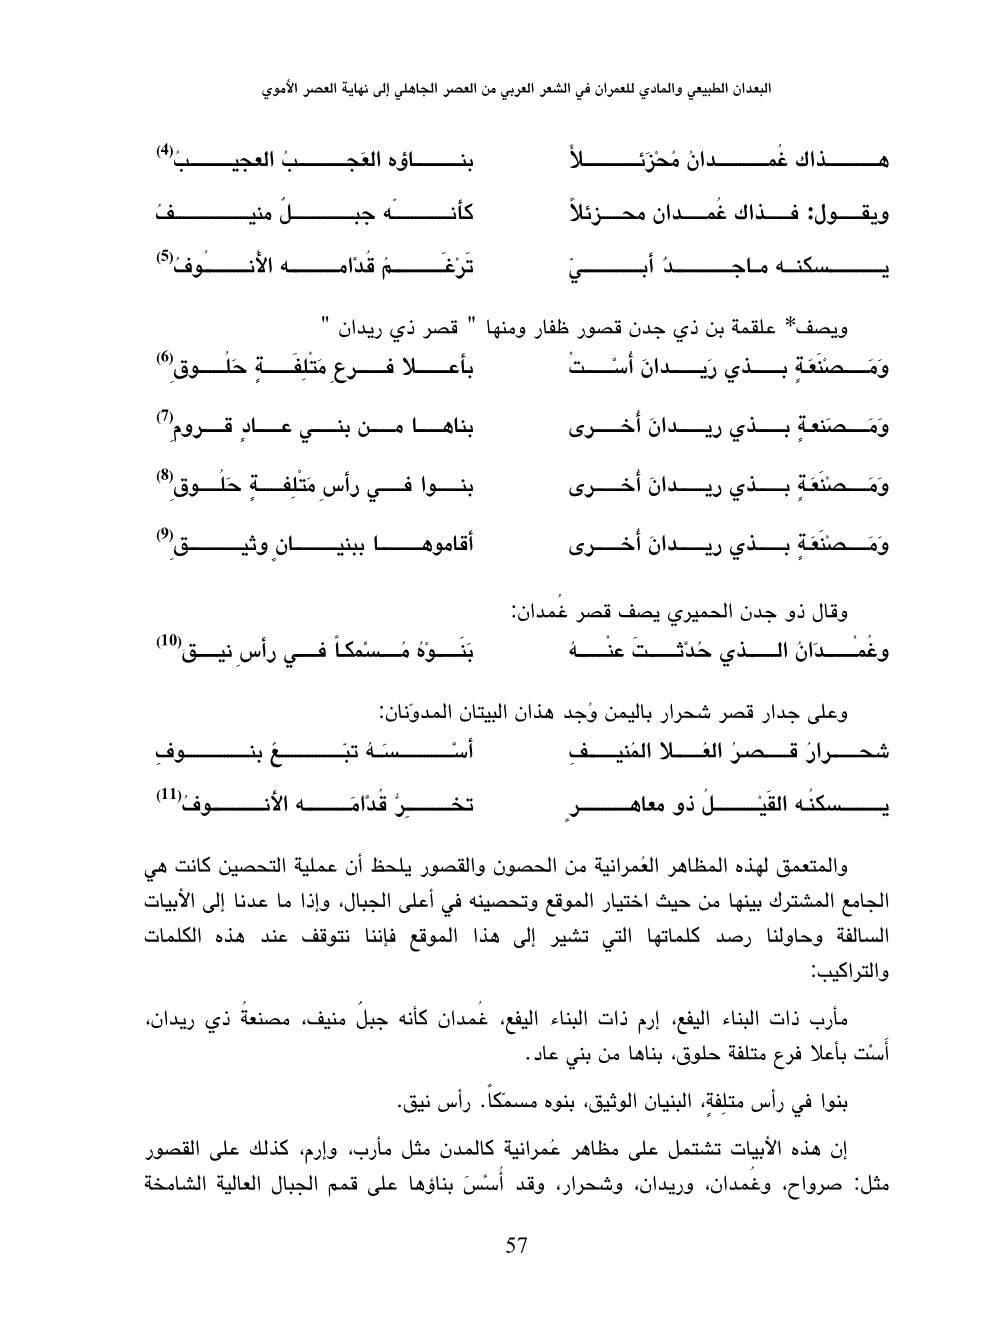 البعدان الطبيعي والمادي للعمران في الشعر العربي من العصر الجاهلي إلى نهاية العصر الأموي
هـذاك غُمـدانُ مُحْزَئـلاًّ بنـاؤه العَجـبُ العجيـبُ(4)
ويقول: فـذاك غُمـدان محـزئلاًّ كأنـّه جبـلٌ منيـفُ
يـسكنـه ماجـدٌ أبـيّ تَرْغَـمُ قُدّامـه الأُنـُوفُ(5)
ويصف* علقمة بن ذي جدن قصور ظفار ومنها " قصر ذي ريدان "
وَمَـصْنَعَةٍ بـذي رَيـدانَ أُسّـتْ بأعـلا فـرعِ مَتْلِفَـةٍ حَلُـوقِ(6)
وَمَـصَنعةٍ بـذي ريـدانَ أُخـرى بناهـا مـن بنـي عـادٍ قـرومِ(7)
وَمَـصْنَعَةٍ بـذي ريـدانَ أُخـرى بنـوا فـي رأسِ مَتْلِفـةٍ حَلُـوقِ(8)
وَمَـصْنَعَةٍ بـذي ريـدانَ أُخـرى أقاموهـا ببنيـانٍ وثيـقِ(9)
وقال ذو جدن الحميري يصف قصر غُمدان:
وغُمْـدَانُ الـذي حُدّثـتَ عنْـهُ بَنَـوْهُ مُـسمَّكاً فـي رأسِ نيـق(10)
وعلى جدار قصر شحرار باليمن وُجد هذان البيتان المدوّنان:
شحـرارُ قـصرُ العُـلا المُنيـفِ أسْـسَـهُ تبّـعُ بنـوفِ
يـسكنُه القَيْـلُ ذو معاهـرٍ تخـرُّ قُدّامَـه الأنـوفُ(11)
والمتعمق لهذه المظاهر العُمرانية من الحصون والقصور يلحظ أن عملية التحصين كانت هي
الجامع المشترك بينها من حيث اختيار الموقع وتحصينه في أعلى الجبال، وإذا ما عدنا إلى الأبيات
السالفة وحاولنا رصد كلماتها التي تشير إلى هذا الموقع فإننا نتوقف عند هذه الكلمات
والتراكيب:
مأرب ذات البناء اليفع، إرم ذات البناء اليفع، غُمدان كأنه جبلٌ منيف، مصنعةُ ذي ريدان،
أُسّت بأعلا فرع متلفة حلوق، بناها من بني عاد.
بنوا في رأس متلِفةٍ، البنيان الوثيق، بنوه مسمّكاً. رأس نيق.
إن هذه الأبيات تشتمل على مظاهر عُمرانية كالمدن مثل مأرب، وإرم، كذلك على القصور
مثل: صرواح، وغُمدان، وريدان، وشحرار، وقد أُسّسَ بناؤها على قمم الجبال العالية الشامخة
57